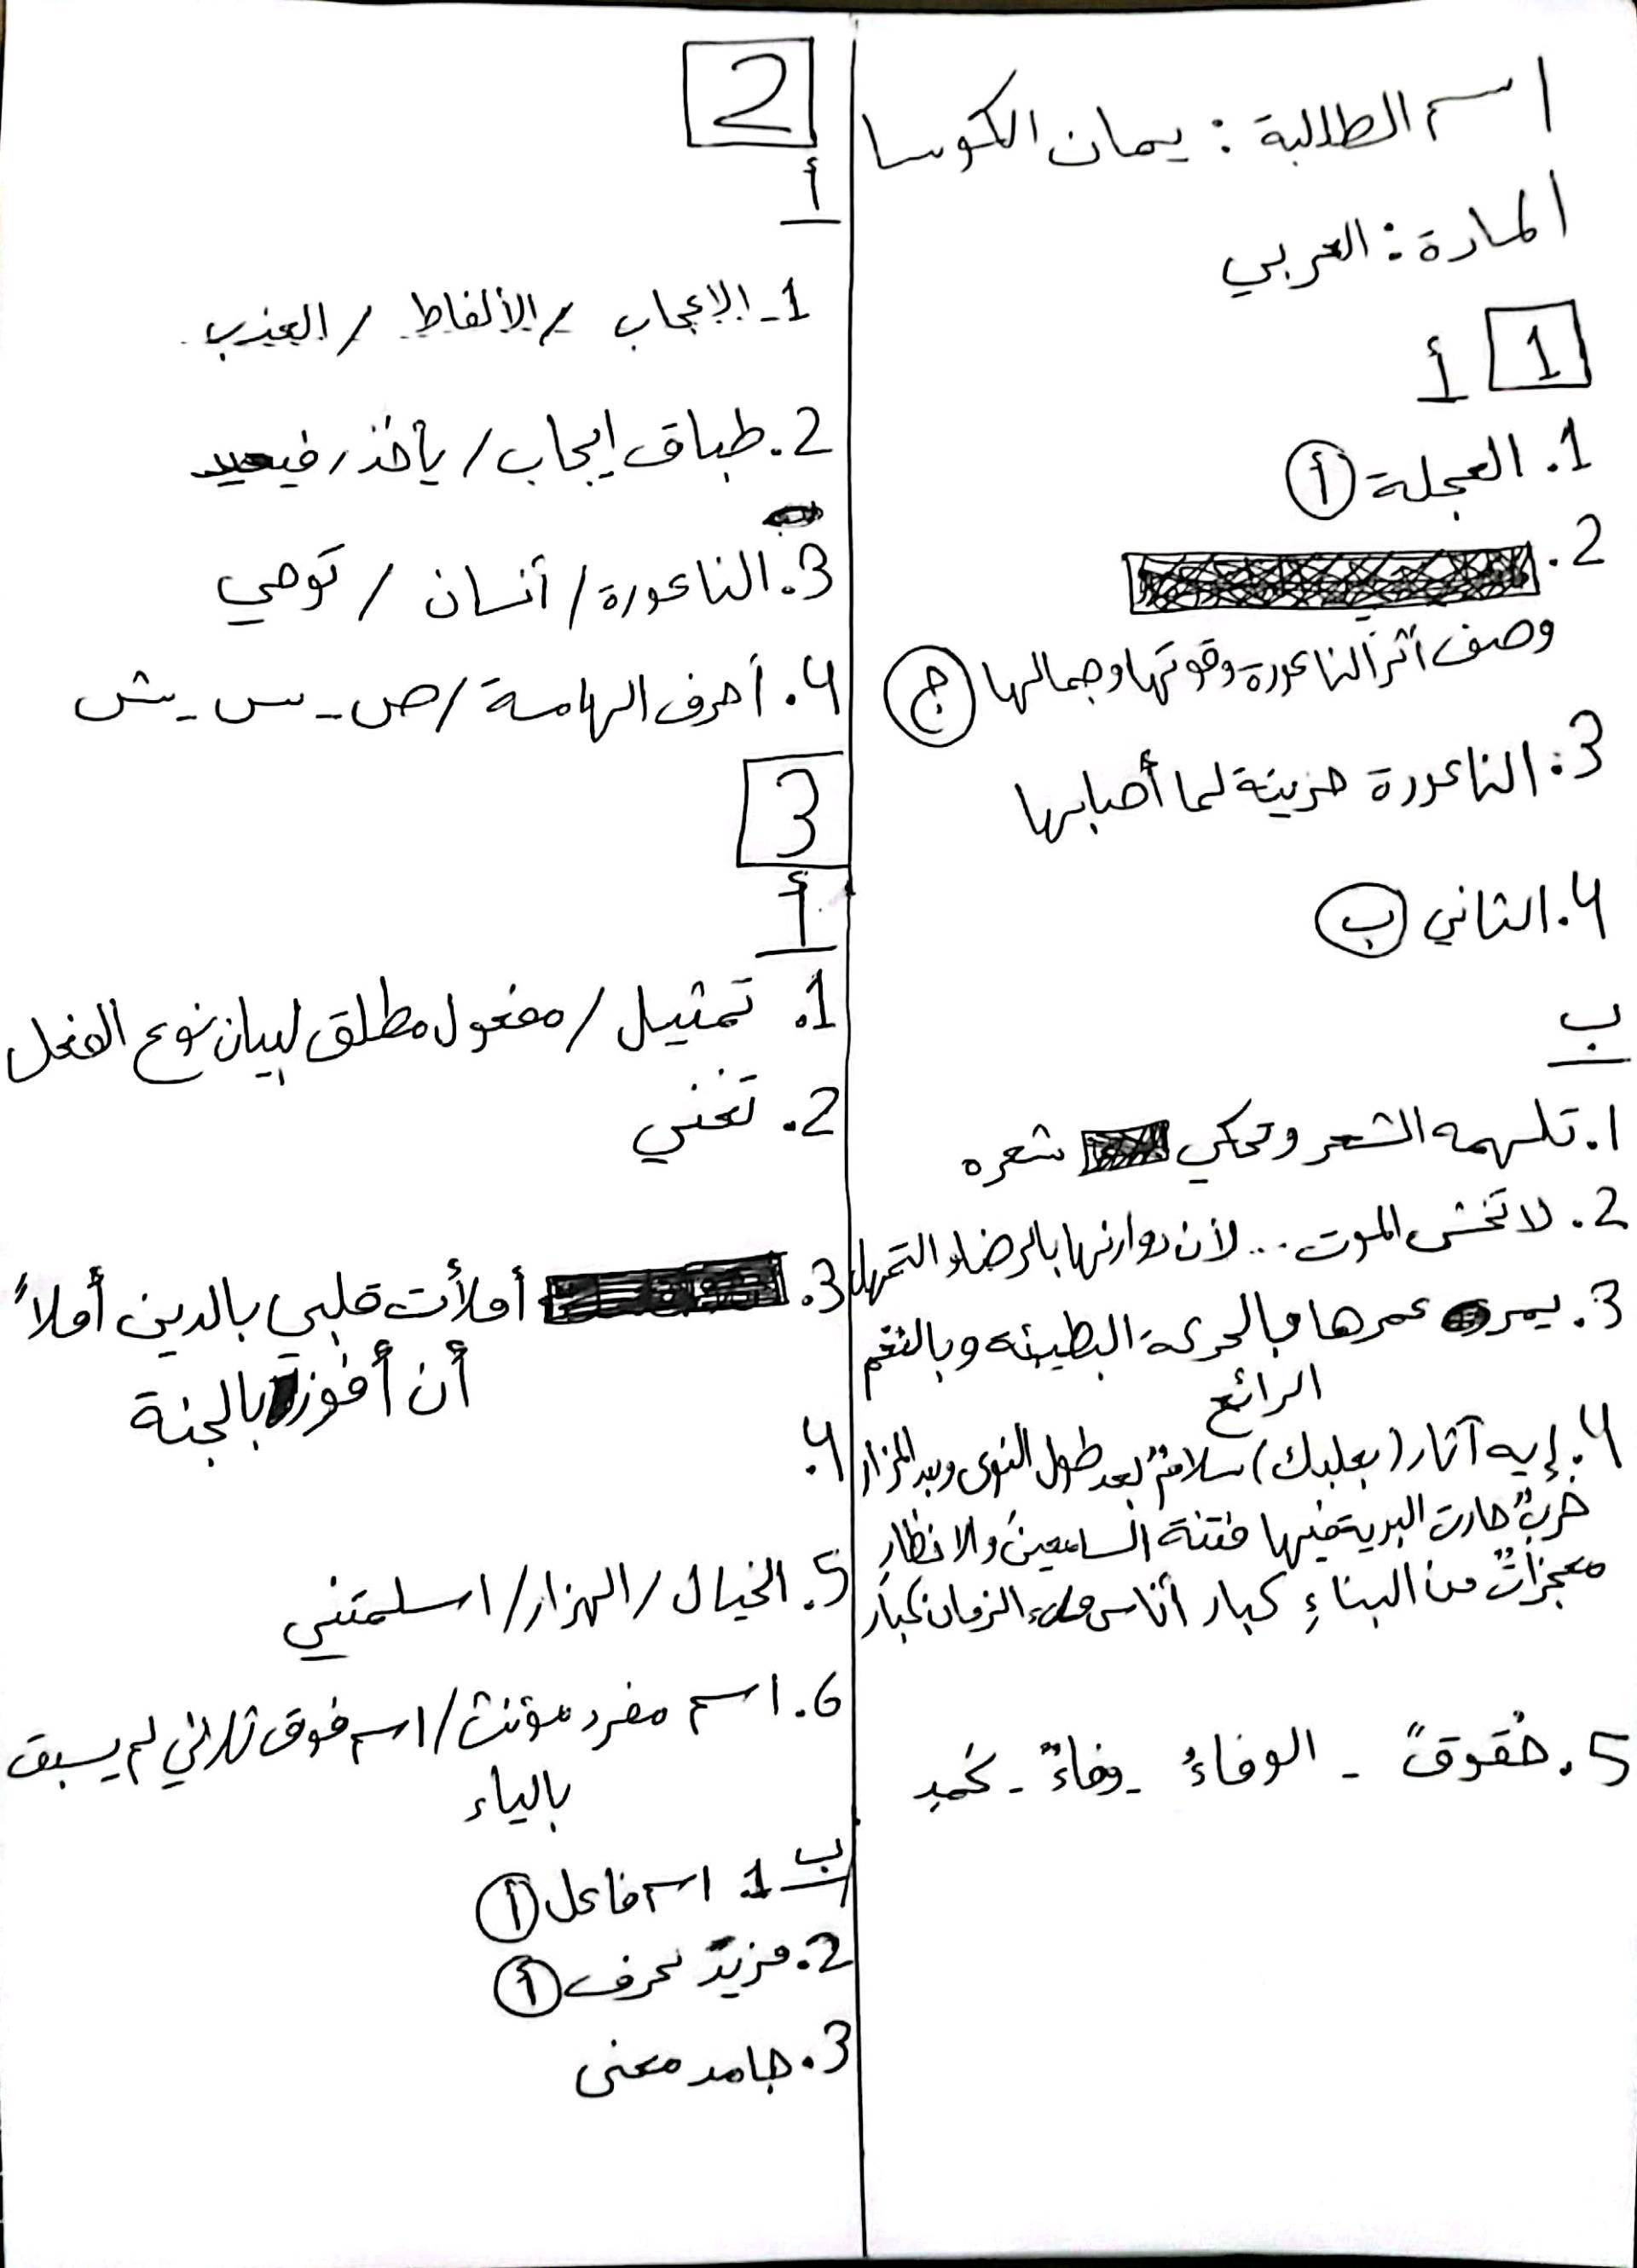 اسم الطالبة : يمان الكوسا
المادة : العربي
1 أ
1. العجلة أ
2.
وصف أثر الناعورة وقوتها وجمالها ج
3. الناعورة حزينة لما أصابها
4. الثاني ب
ب
1. تلهمه الشعر وتحكي شعره
2. لا تخشى الموت ... لأن دوارنها بالرضا والتمهل
3. يمر عمرها بالحركة البطيئة وبالنغم
الرائع
4. إيه آثار (بعلبك) سلامٌ بعد طول النوى وبعد المزار
خربٌ حارت البرية فيها فتنة السامعين والانظارِ
معجزاتٌ من البناءِ كبار أناس ملء الزمان كبار
5. حُقوقٌ - الوفاءُ - وفاءٌ -
2
أ
1- الإعجاب / الألفاظ / العذب
2. طباق إيجاب / يأخذ ، فيعيد
3. الناعورة / أنسان / توحي
4. أحرف الهامسة / ص - س - ش
3
أ
1. تمثيل / مفعول مطلق لبيان نوع الفعل
2. تغني
3. أملأت قلبي بالدين أملاً
أن أفوز بالجنة
4.
5. الخيال / الهزار / اسلمتني
6. اسم مفرد مؤنث / اسم فوق ثلاثي لم يسبق
بالياء
ب 1. اسم فاعل أ
2. مزيد بحرف أ
3. جامد معنى